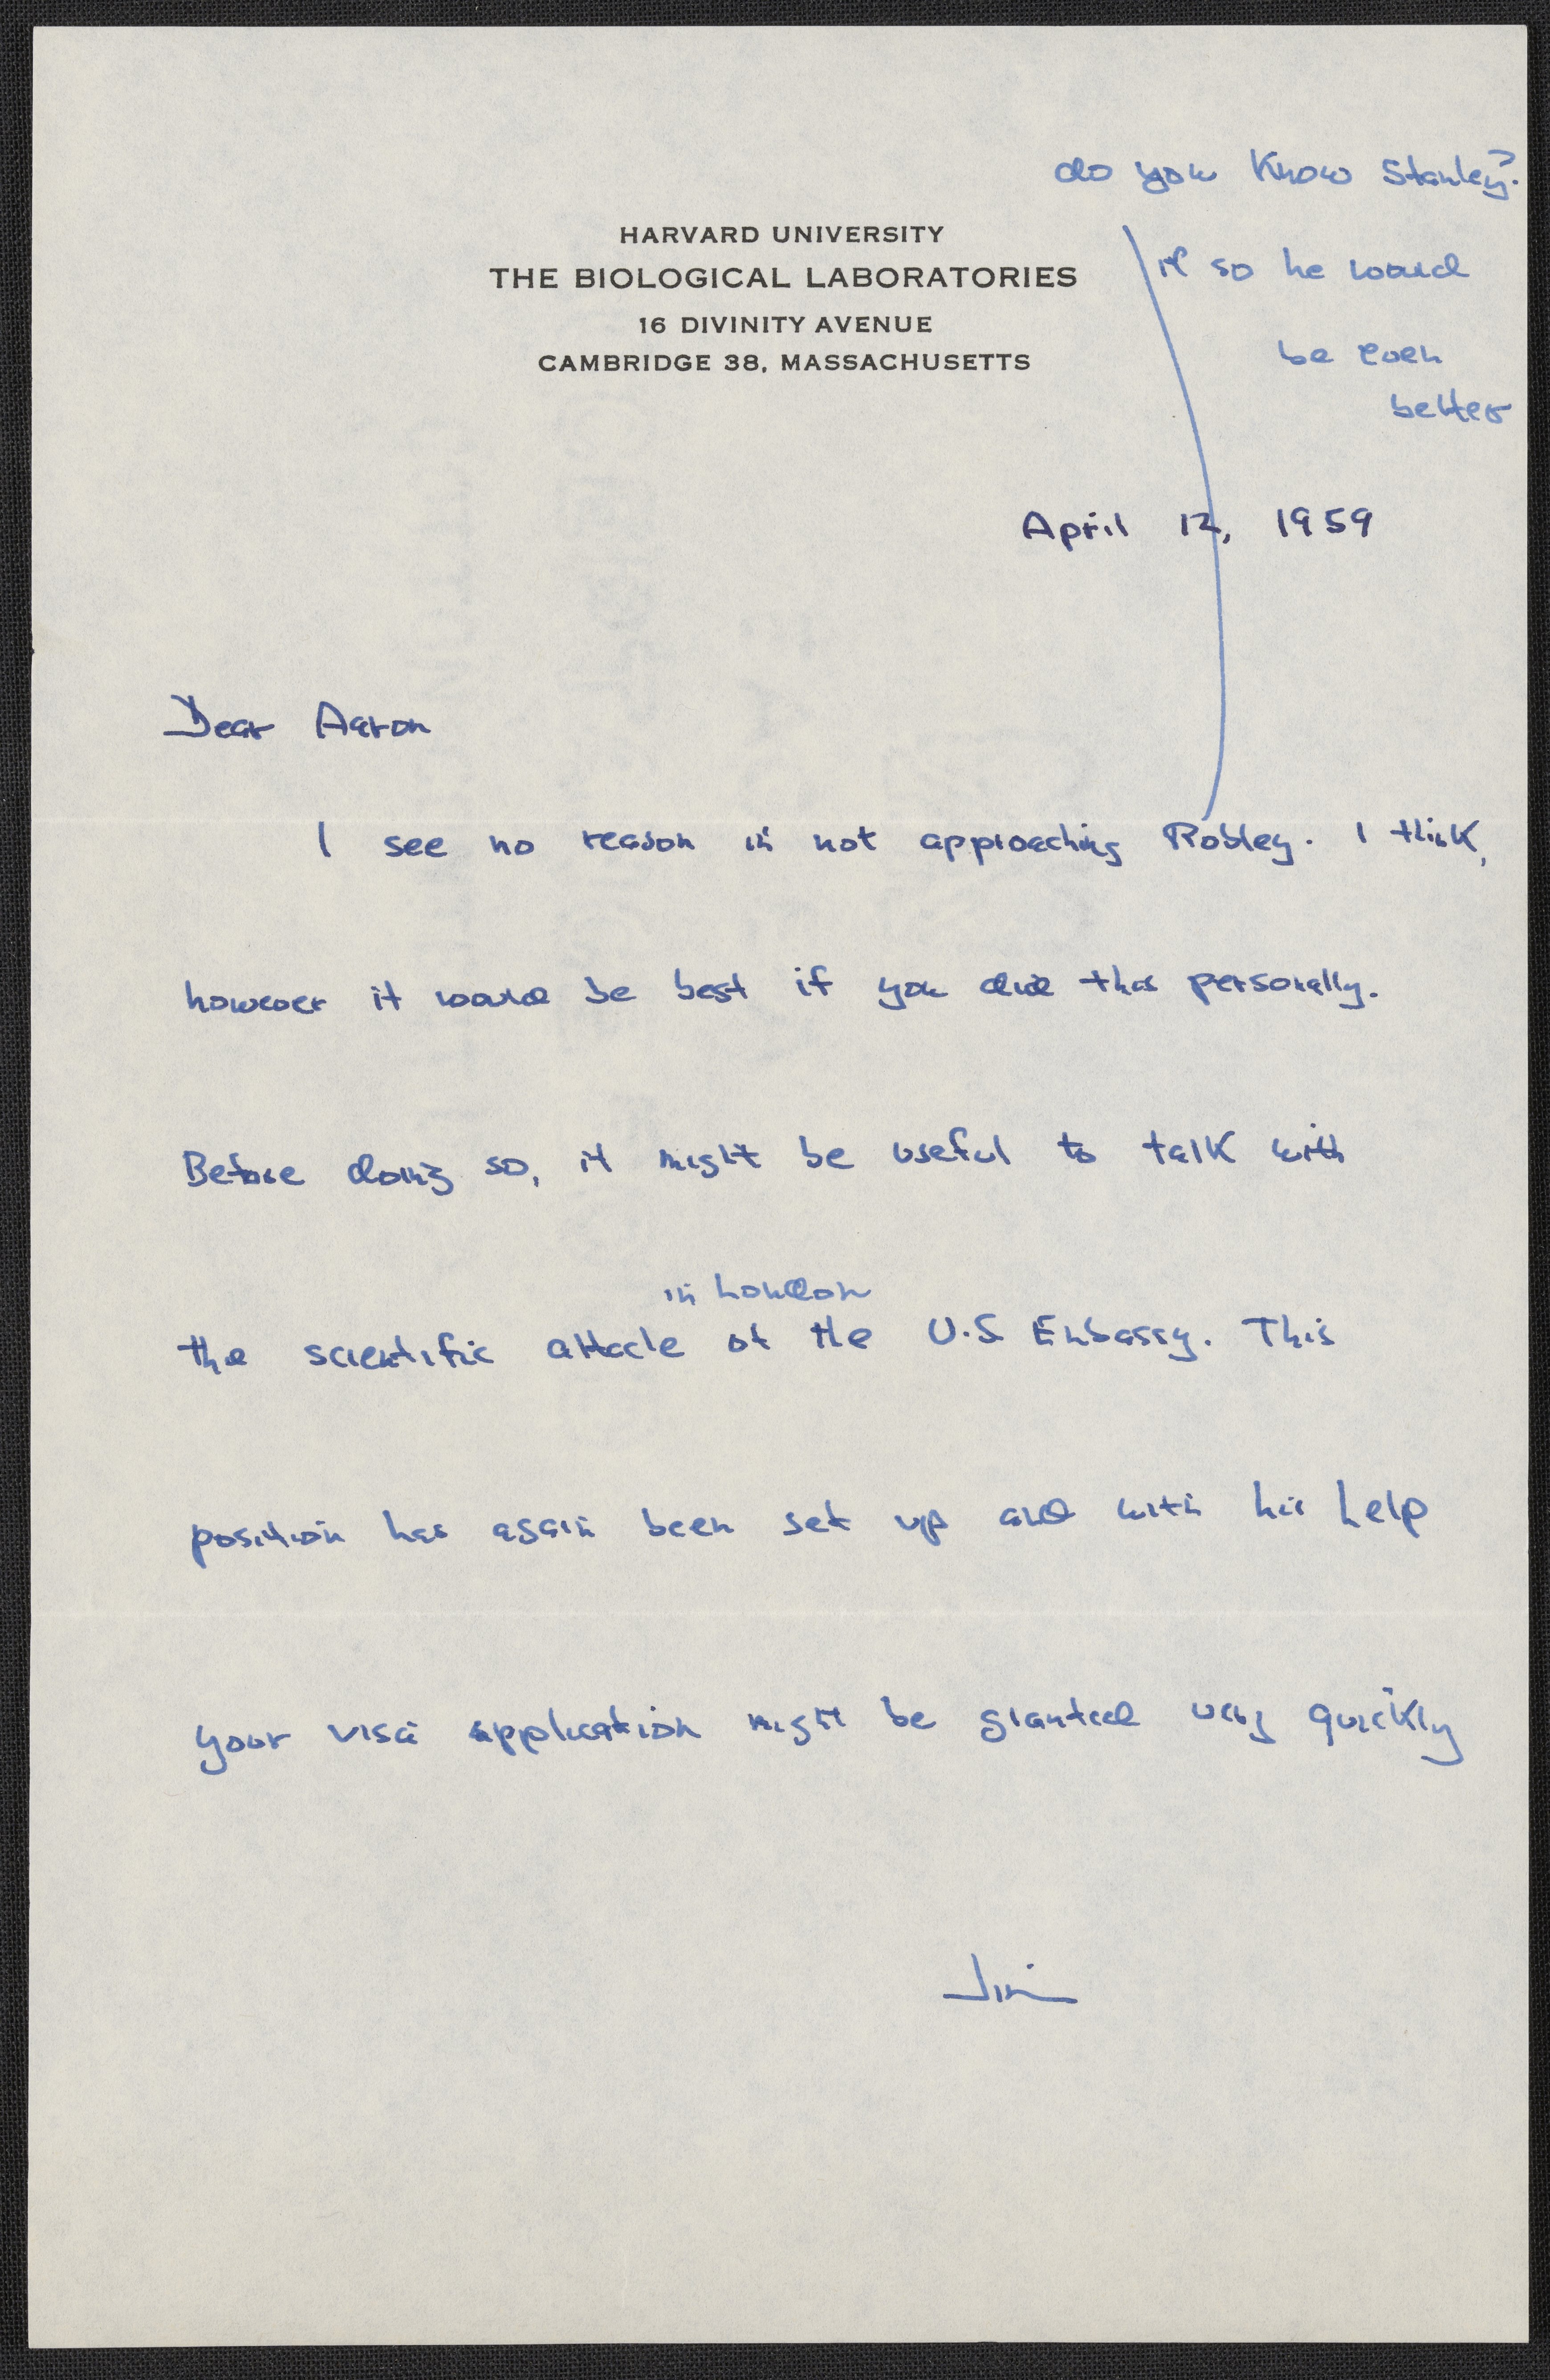 do you know Stanley?
if so he would
be even
better
HARVARD UNIVERSITY
THE BIOLOGICAL LABORATORIES
16 DIVINITY AVENUE
CAMBRIDGE 38, MASSACHUSETTS
April 12, 1959
Dear Aaron
I see no reason in not approaching Robley. I think,
however it would be best if you did this personally.
Before doing so, it might be useful to talk with
in London
the scientific attache at the U.S Embassy. This
position has again been set up and with his help
your visa application might be granted very quickly
Jim